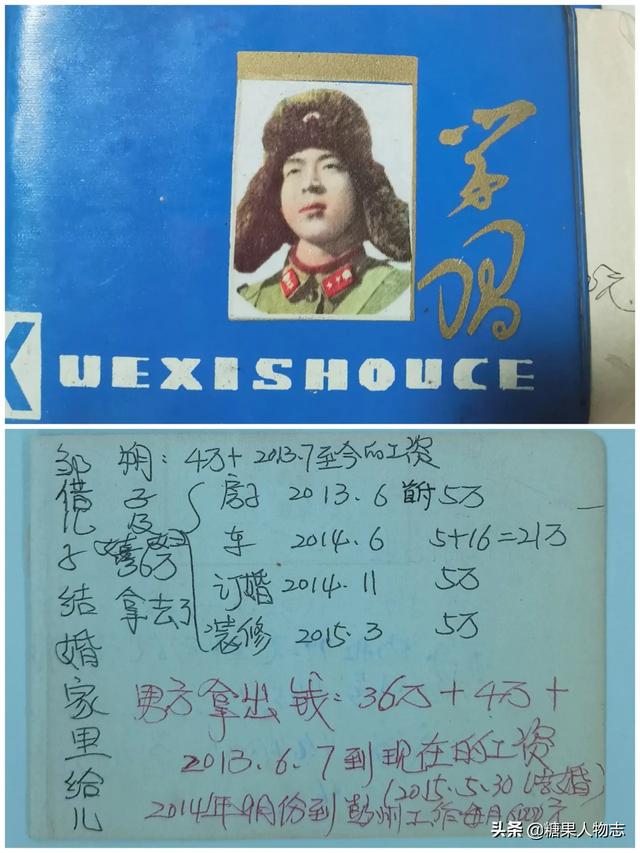 学习
UEXISHOUCE
元
邹朔：4万+2013.7至今的工资
借儿子结婚家里给儿
子及
36万
拿去了
房子 2013.6 首付 5万
车 2014.6 5+16=21万
订婚 2014.11 5万
装修 2015.3 5万
男方拿出钱：36万+4万+
2013.6.7到现在的工资
(2015.5.30结婚)
2014年9月份到彭州工作每月元
头条 @糖果人物志